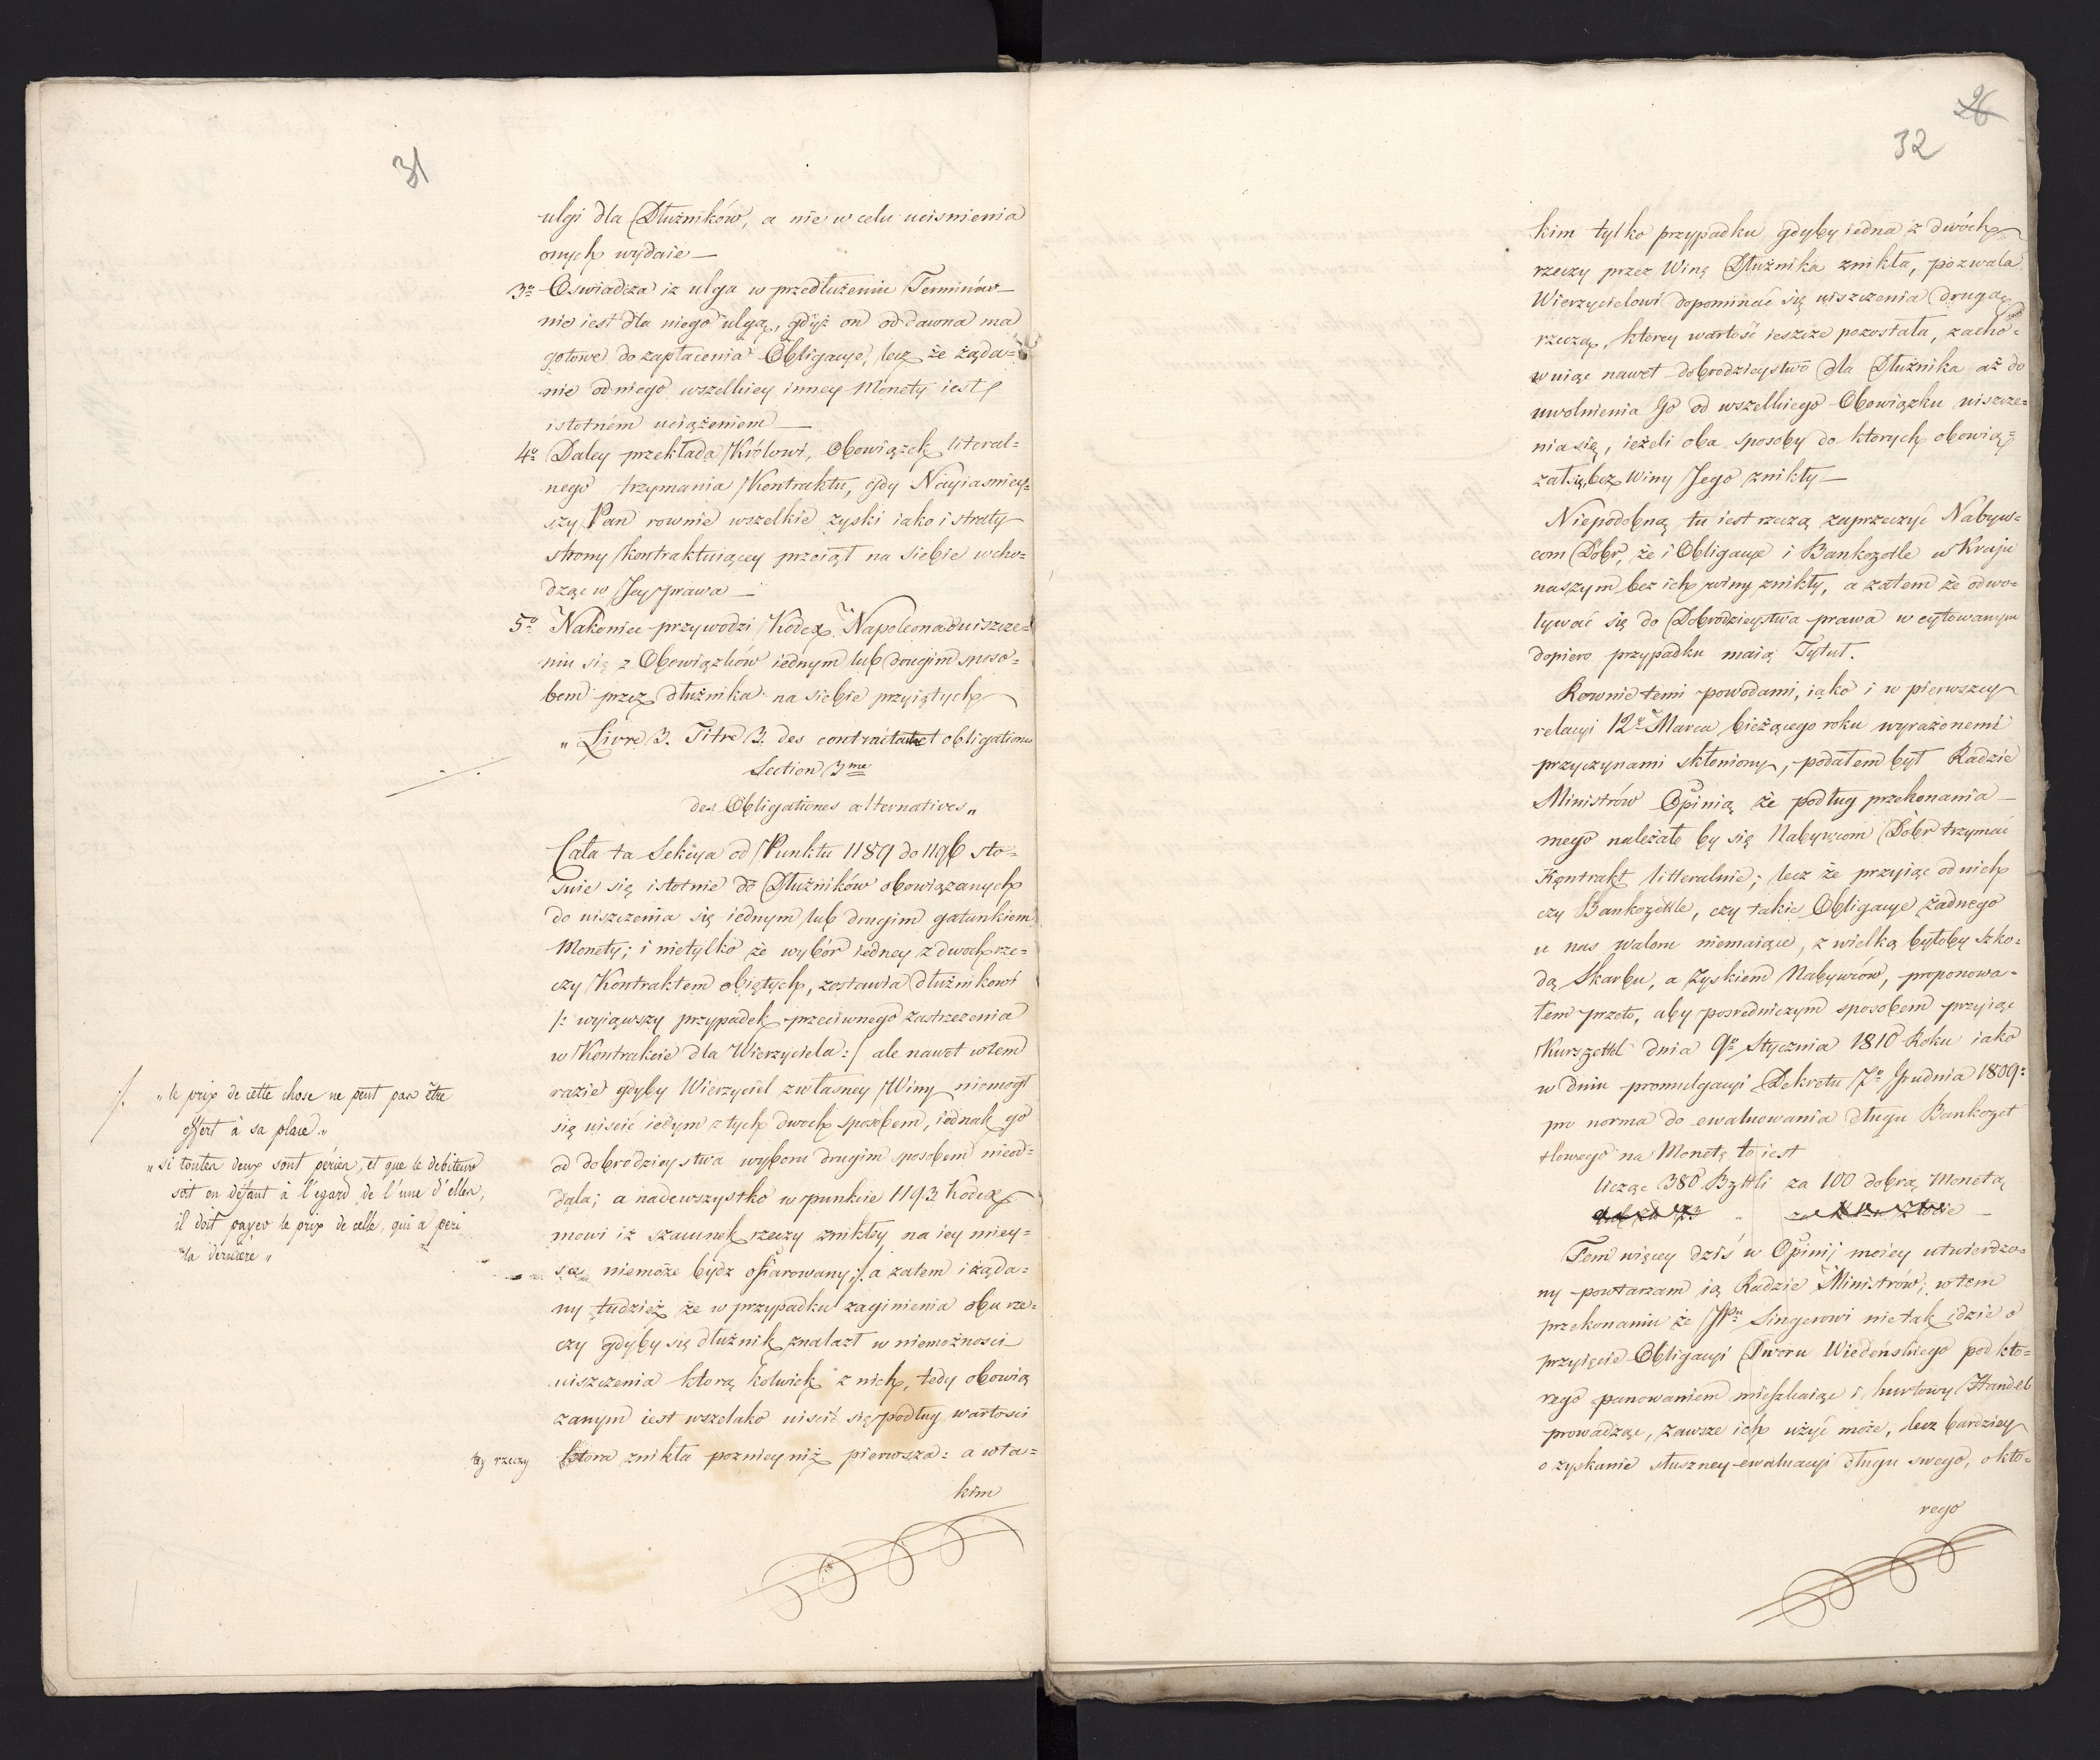 31
ulgi dla Dłużników, a nie w celu ucismienia
onych wydaie —
3o Oswiadcza iż ulga w przedłużeniu Terminów —
nie iest dla niego ulgą, gdyż on od dawna ma
gotowe do zapłacenia Obligacye, lecz że żąda=
nie od niego wszelkiey inney Monety iest
istotném uciążeniem —
4o Daley przekłada Królowi, Obowiązek literal=
nego trzymania Kontraktu, gdy Nayiasniey=
szy Pan rownie wszelkie zyski iako i straty
strony kontraktuiącey przeiął na siebie wcho=
dząc w Jey prawa —
5o Nakoniec przywodzi Kodex Napoleona o uiszcze=
niu się z Obowiązków iednym lub drugim sposo=
bem przez dłużnika na siebie przyiętych
„ Livre 3. Titre 3. des contracts et obligations
Section 3me
des Obligations alternatives „
Cała ta Sekcya od Punktu 1189 do 1196 sto=
suie się istotnie do Dłużników obowiązanych
do uiszczenia się iednym lub drugim gatunkiem
Monety; i nietylko że wybór iedney z dwoch rze=
czy Kontraktem obiętych, zostawia dłużnikowi
/: wyiąwszy przypadek przeciwnego zastrzeżenia
w Kontrakcie dla Wierzyciela :/ ale nawet w tem
razie gdyby Wierzyciel z własney Winy niemogł
się uiscić iedym z tych dwoch sposobem, iednak go
od dobrodzieystwa wyboru drugim sposobem nieod=
dala; a nadewszystko w punkcie 1193 Kodex
mowi iż szacunek rzeczy znikłey na iey miey=
sce niemoże bydz ofiarowany ;/. a zatem i żąda=
ny tudzież że w przypadku zaginienia obu rze=
czy gdyby się dłużnik znalazł w niemożnosci
uiszczenia którą kolwiek z nich, tedy obowią
zanym iest wszelako uiscić się podług wartosci
tey rzeczy która znikła pozniey niż pierwsza: a w ta=
kim
/. „ le prix de cette chose ne peut pas être
offert à sa place „
„ si toutes deux sont péries, et que le debiteur
soit en défaut à l'egard de l'une d'elles,
il doit payer le prix de celle, qui a peri
la derniere „
26
32
kim tylko przypadku gdyby iedna z dwóch
rzeczy przez Winę Dłużnika znikła, pozwala
Wierzycielowi dopominać się uiszczenia drugą
rzeczą, ktorey wartość ieszcze pozostała, zacho=
wuiąc nawet dobrodzieystwo dla Dłużnika aż do
uwolnienia Go od wszelkiego Obowiązku uiszcze=
nia się, ieżeli oba sposoby do ktorych obowią=
zał się, bez Winy Jego znikły —
Niepodobną tu iest rzeczą zaprzeczyć Nabyw=
com Dobr, że i Obligacye i Bankozetle w Kraju
naszym bez ich winy znikły, a zatem że odwo=
ływać się do Dobrodzieystwa prawa w cytowanym
dopiero przypadku maią Tytuł.
Rownie temi powodami, iako i w pierwszey
relacyi 12o Marca bieżącego roku wyrażonemi
przyczynami skłoniony, podałem był Radzie
Ministrów Opinią że podług przekonania —
mego należało by się Nabywcom Dobr trzymać
Kontrakt litteralnie; lecz że przyiąć od nich
czy Bankozettle, czy takie Obligacye żadnego
u nas waloru niemaiące, z wielką byłoby szko=
dą Skarbu, a Zyskiem Nabywców, proponowa=
łem przeto, aby posredniczym sposobem przyiąć
Kurszettel dnia 9o Stycznia 1810 Roku iako
w dniu promulgacyi Dekretu 7o Grudnia 1809:
pro norma do ewaluowania długu Bankozet
tlowego na Monetę to iest
licząc 380 Bzttli za 100 dobrą Monetą
Tem więcey dziś w Opinij moiey utwierdzo=
ny powtarzam ią Radzie Ministrów; w tem
przekonaniu że JPu Singerowi nie tak idzie o
przyięcie Obligacyi Dworu Wiedeńskiego pod kto=
rego panowaniem mieszkaiąc i hurtowy Handel
prowadząc, zawsze ich użyć może, lecz bardziey
o zyskanie słuszney ewaluacyi długu swego, o kto=
rego